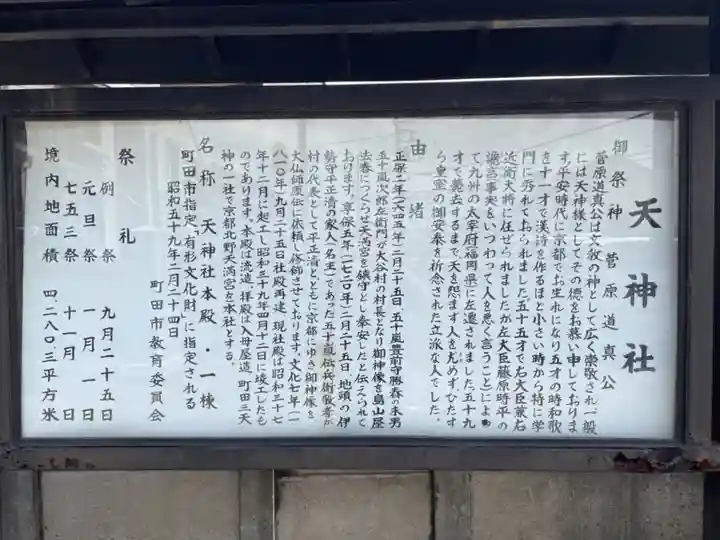 天神社
御祭神　菅原道真公
菅原道真公は文教の神として広く崇敬され一般
には天神様としてその徳をお慕い申しておりま
す。平安時代に京都でお生れになり五才の時和歌
を十一才で漢詩を作るほど小さい時から特に学
門に秀れておられました。五十五才で右大臣兼右
近衛大将に任ぜられましたが左大臣藤原時平の
讒言(事実をいつわって人を悪く言うこと)によ
って九州の太宰府(福岡県)に左遷されました。五十九
才で薨去するまで、天を怨まず人を尤めず、ひたす
ら皇室の御安泰を祈念された立派な人でした。
由緒
正保二年(一六四五年)二月二十五日、五十嵐豊前守勝春の末男
五十嵐次郎左衛門が大谷村の村長となり御神像を島山屋
敷につくらせ天満宮を鎮守とし奉安したと伝えられて
おります。享保五年(一七二〇年)二月二十五日地頭の伊
勢守平正清の家人(名主)であった五十嵐伝兵衛敬孝が
村の代表として平正清とともに京都にゆき御神像を
大仏師康伝に依頼し修飾させております。文化七年(一
八一〇年)九月二十五日社殿再建、現社殿は昭和三十七
年十二月に起工し昭和三十九年四月十二日に竣工したも
のであります。本殿は流造、拝殿は入母屋造、町田三天
神の一社で京都北野天満宮を本社とする。
名称　天神社本殿・一棟
町田市指定、有形文化財に指定される
昭和五十九年二月二十四日
町田市教育委員会
祭礼
例祭　九月二十五日
元旦祭　一月一日
七五三祭　十一月　日
境内地面積　四.二八〇.三平方米